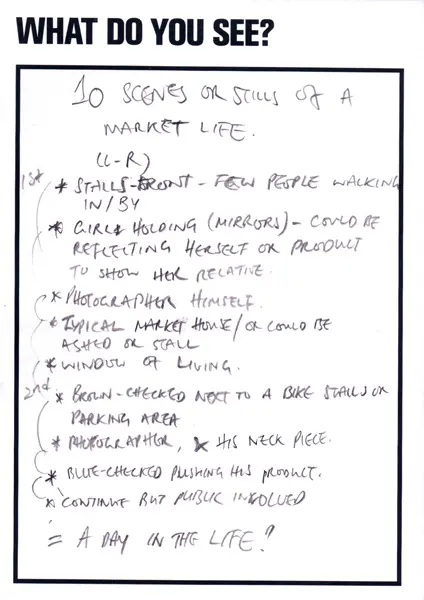 WHAT DO YOU SEE?
10 SCENES OR STILLS OF A
MARKET LIFE.
(L-R)
1st * STALLS-FRONT - FEW PEOPLE WALKING
IN/BY
* GIRL HOLDING (MIRRORS) - COULD BE
REFLECTING HERSELF OR PRODUCT
TO SHOW HER RELATIVE.
* PHOTOGRAPHER HIMSELF.
* TYPICAL MARKET HOUSE/OR COULD BE
ASHED OR STALL
* WINDOW OF LIVING.
2nd * BROWN-CHECKED NEXT TO A BIKE STALLS OR
PARKING AREA
* PHOTOGRAPHER, X HIS NECK PIECE.
* BLUE-CHECKED PUSHING HIS PRODUCT.
* CONTINUE BUT PUBLIC INVOLVED
= A DAY IN THE LIFE?